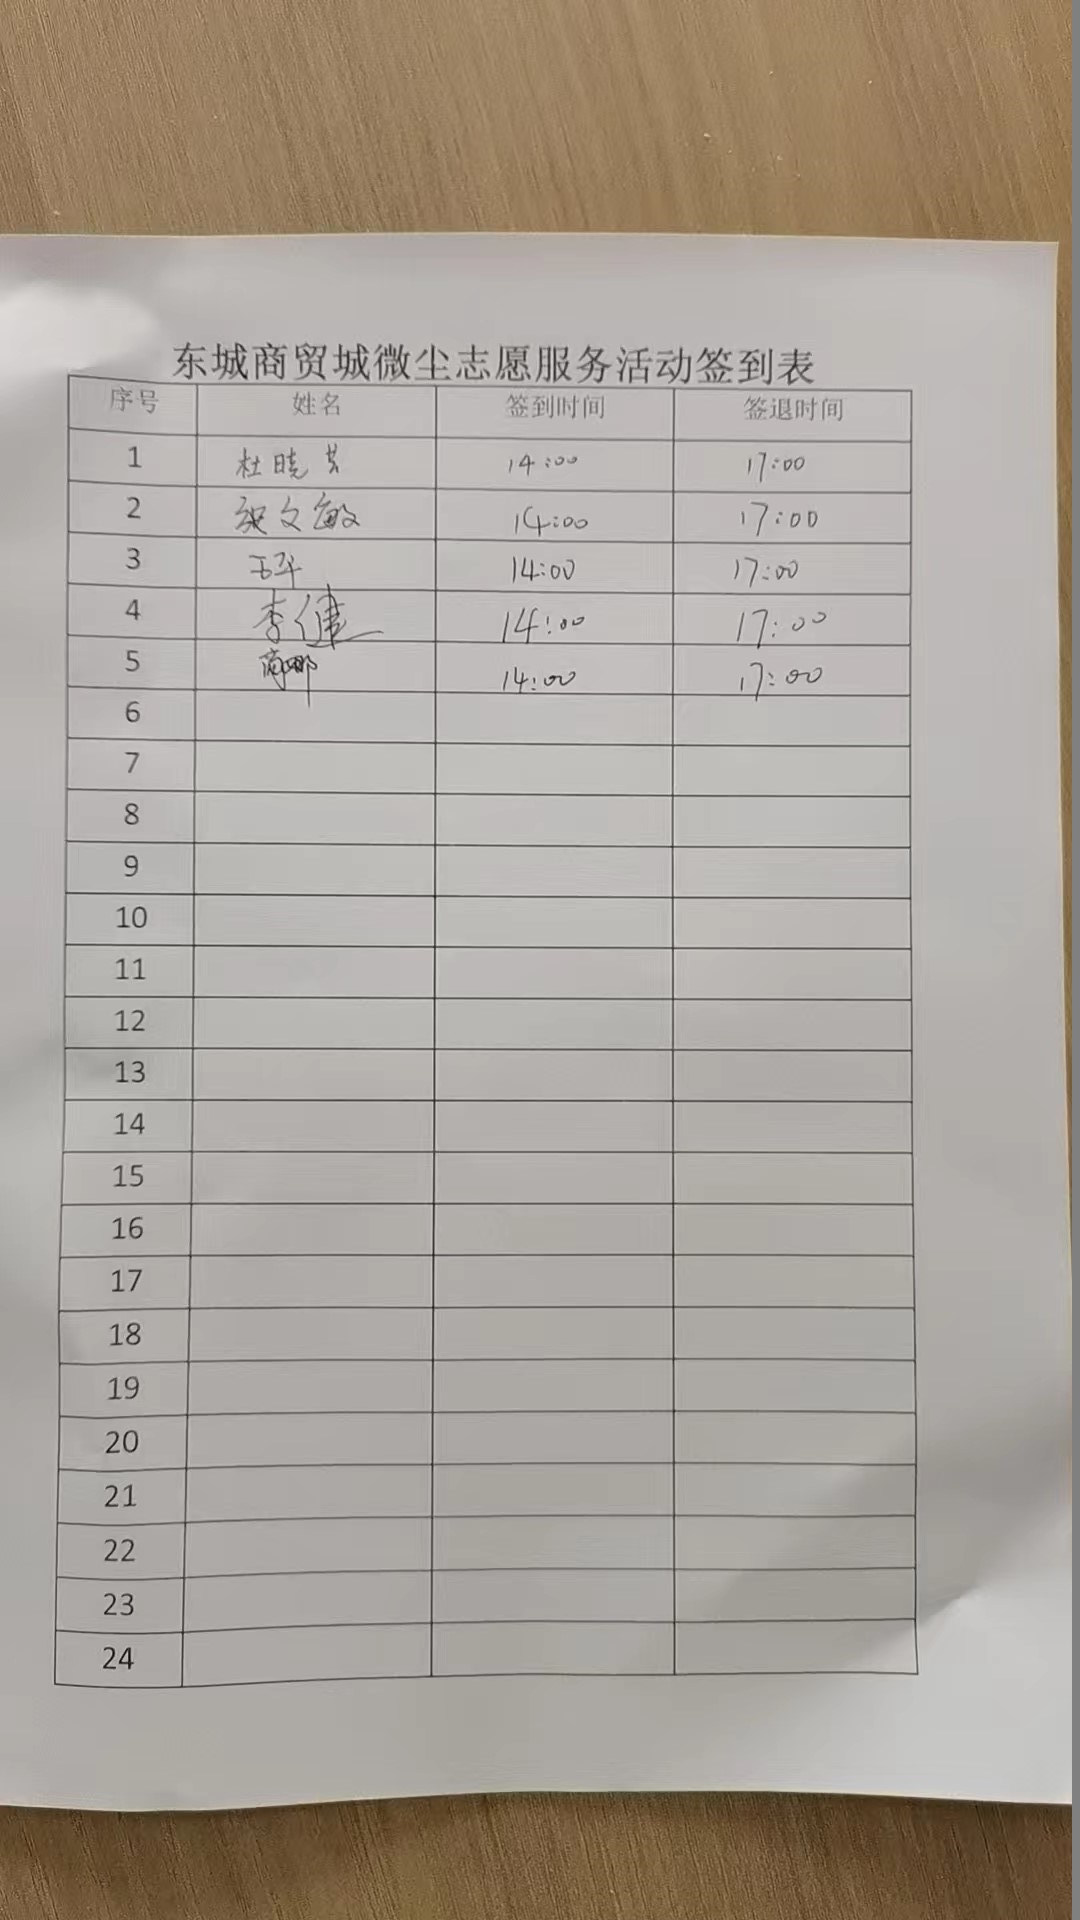 东城商贸城微尘志愿服务活动签到表
序号 姓名 签到时间 签退时间
1 杜晓 14:00 17:00
2 文敏 14:00 17:00
3 14:00 17:00
4 李健 14:00 17:00
5 娜 14:00 17:00
6
7
8
9
10
11
12
13
14
15
16
17
18
19
20
21
22
23
24